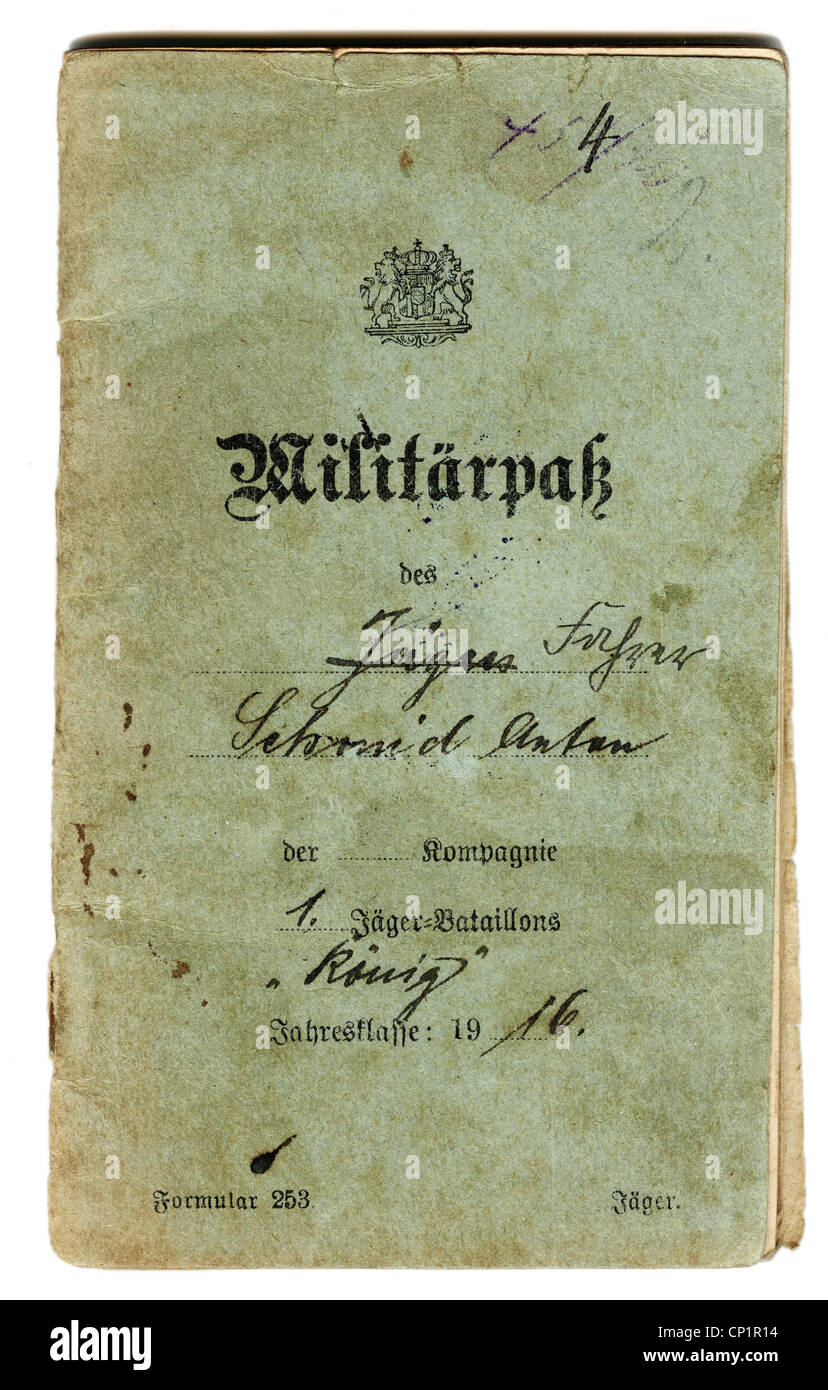 4
Militärpaß
des
Jäger Fahrer
Schmid Anton
der ........ Kompagnie
1. Jäger-Bataillons
„König“
Jahresklasse: 19 16.
Formular 253.
Jäger.
alamy
alamy
alamy
Image ID: CP1R14
www.alamy.com